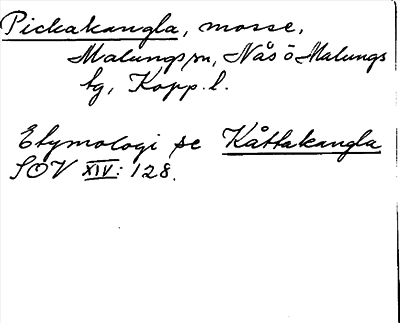 Pickakangla, mosse,
Malungs sn, Nås ö Malungs
tg, Kopp. l.
Etymologi se Kåttakangla
SOV XIV: 128.